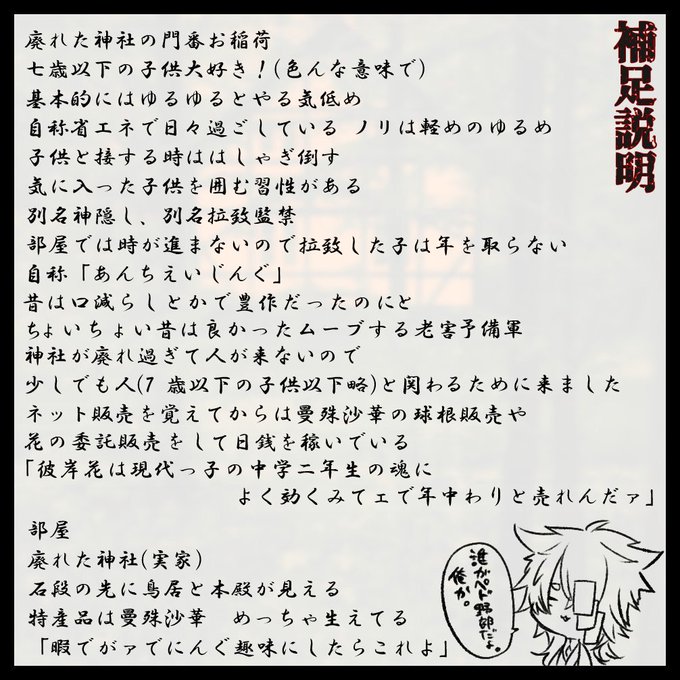 補足説明
廃れた神社の門番お稲荷
七歳以下の子供大好き！(色んな意味で)
基本的にはゆるゆるとやる気低め
自称省エネで日々過ごしている ノリは軽めのゆるめ
子供と接する時ははしゃぎ倒す
気に入った子供を囲む習性がある
別名神隠し、別名拉致監禁
部屋では時が進まないので拉致した子は年を取らない
自称「あんちえいじんぐ」
昔は口減らしとかで豊作だったのにと
ちょいちょい昔は良かったムーブする老害予備軍
神社が廃れ過ぎて人が来ないので
少しでも人(7 歳以下の子供以下略)と関わるために来ました
ネット販売を覚えてからは曼殊沙華の球根販売や
花の委託販売をして日銭を稼いでいる
「彼岸花は現代っ子の中学二年生の魂に
よく効くみてェで年中わりと売れんだァ」
部屋
廃れた神社(実家)
石段の先に鳥居と本殿が見える
特産品は曼殊沙華　めっちゃ生えてる
「暇でがァでにんぐ趣味にしたらこれよ」
誰がペド野郎だよ。
俺か。